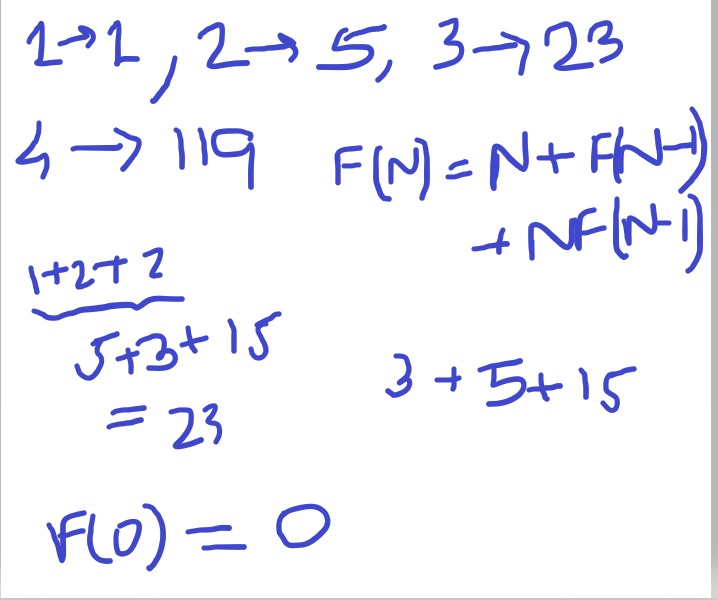 1→1, 2→5, 3→23
4→119
F(N) = N + F(N-1)
+ NF(N-1)
1+2+2
5+3+15
= 23
3 + 5 + 15
F(0) = 0